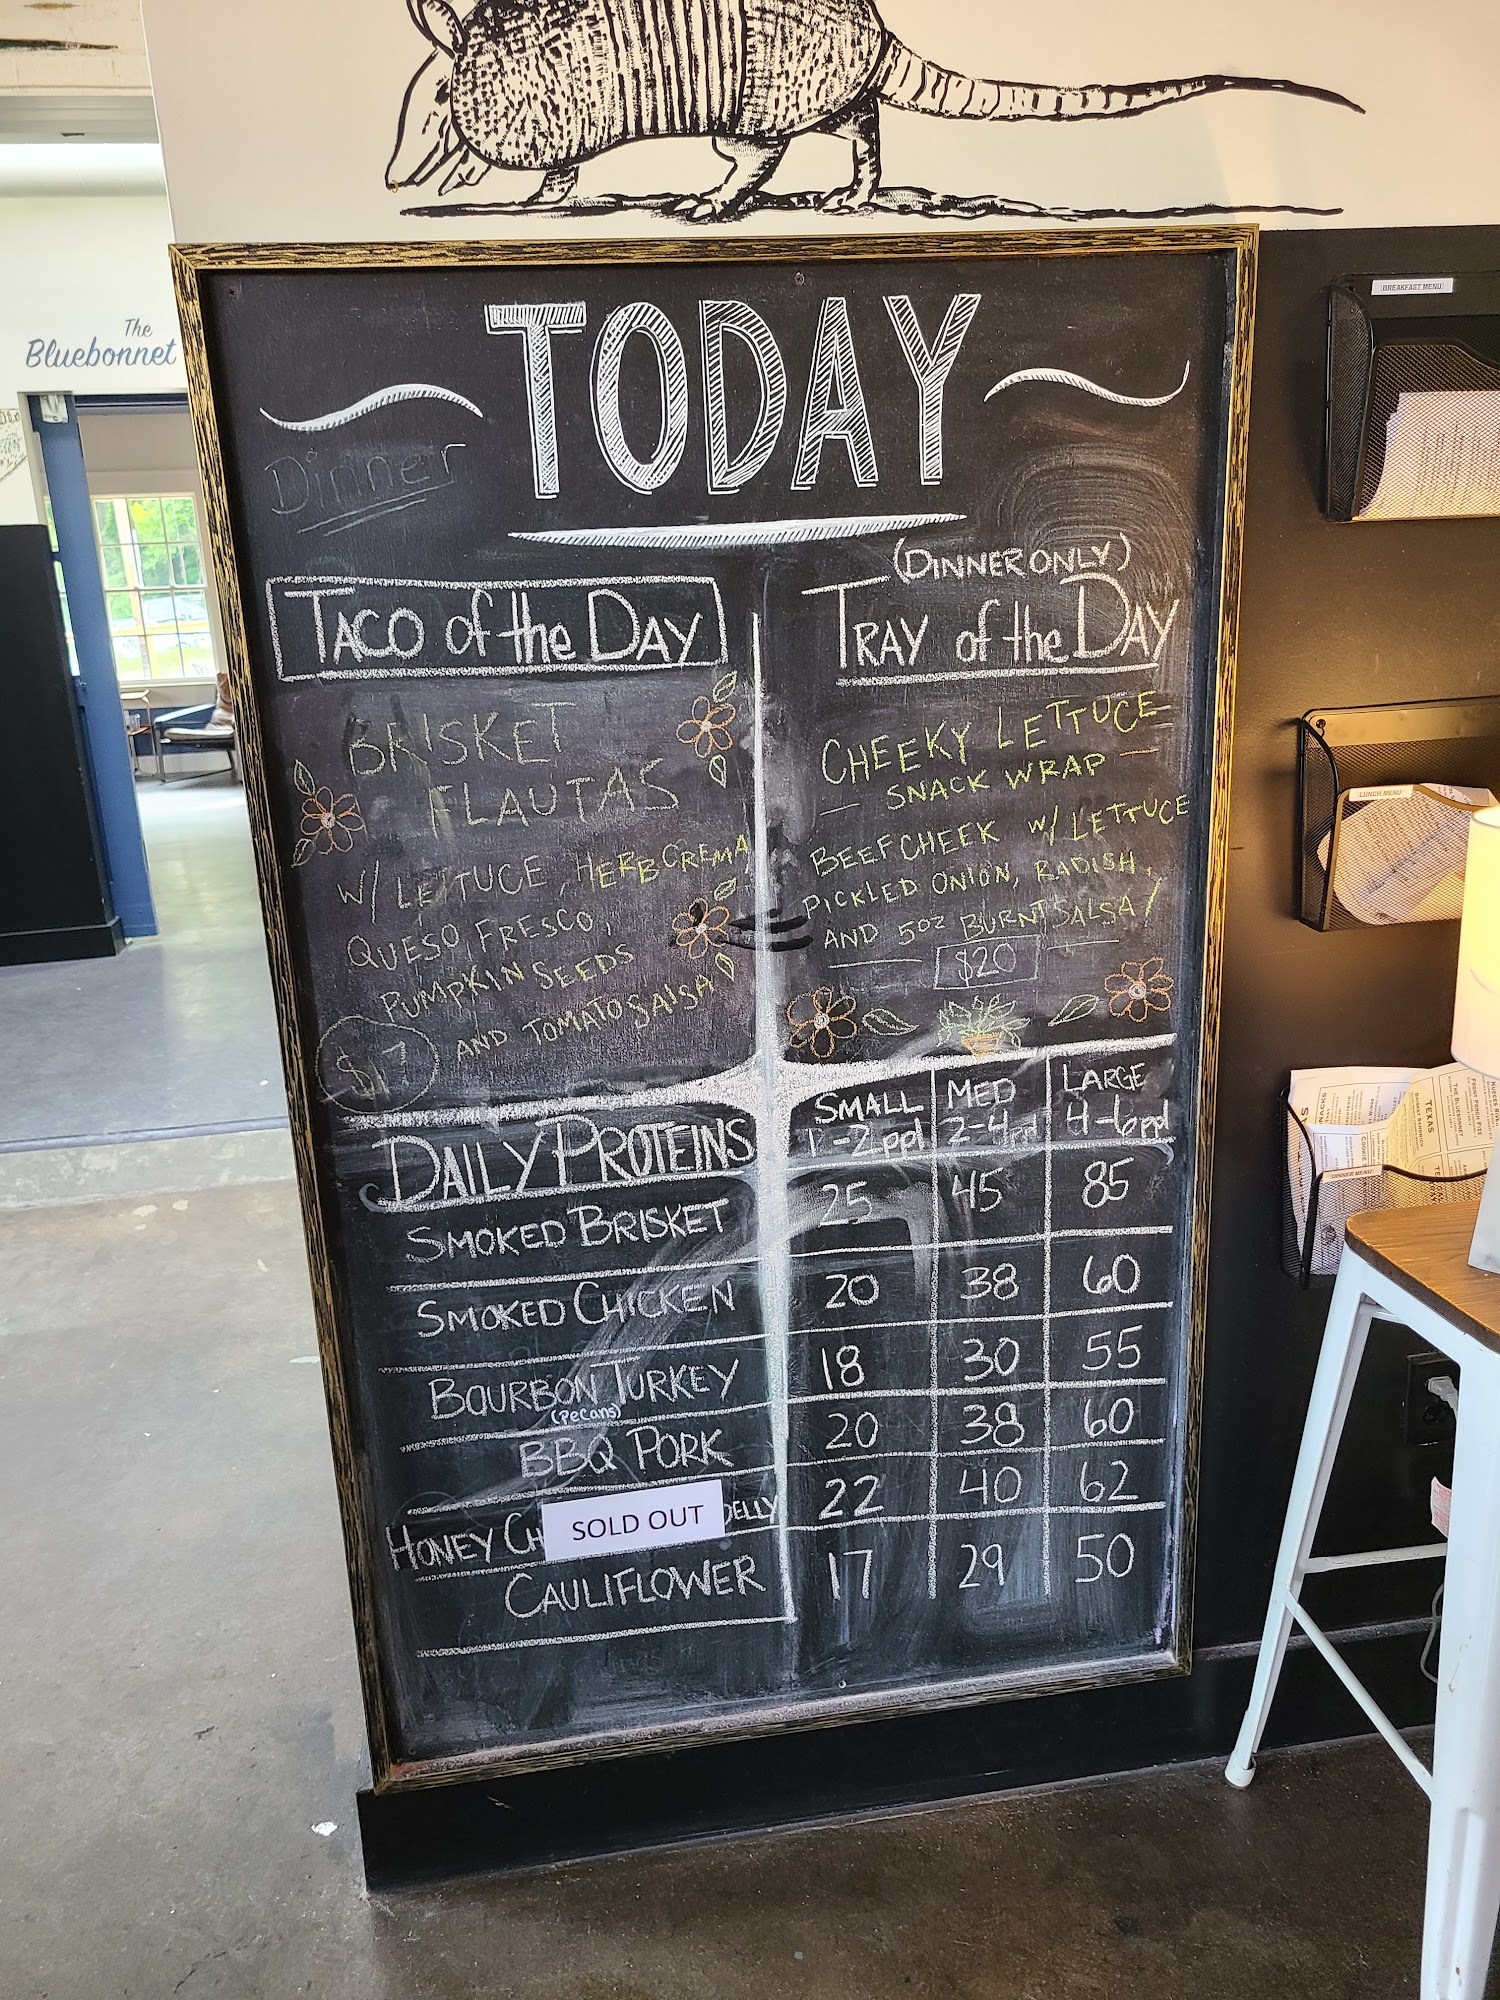 The
Bluebonnet
BREAKFAST MENU
TODAY
Dinner
TACO of the DAY
BRISKET
FLAUTAS
W/ LETTUCE, HERB CREMA
QUESO FRESCO,
PUMPKIN SEEDS
AND TOMATO SALSA
$17
(DINNER ONLY)
TRAY of the DAY
CHEEKY LETTUCE
SNACK WRAP
BEEF CHEEK W/ LETTUCE
PICKLED ONION, RADISH,
AND 5OZ BURNT SALSA
$20
LUNCH MENU
DAILY PROTEINS SMALL 1-2 ppl MED 2-4 ppl LARGE 4-6 ppl
SMOKED BRISKET 25 45 85
SMOKED CHICKEN 20 38 60
BOURBON TURKEY 18 30 55
(pecans)
BBQ PORK 20 38 60
HONEY SOLD OUT BELLY 22 40 62
CAULIFLOWER 17 29 50
DINNER MENU
TEXAS